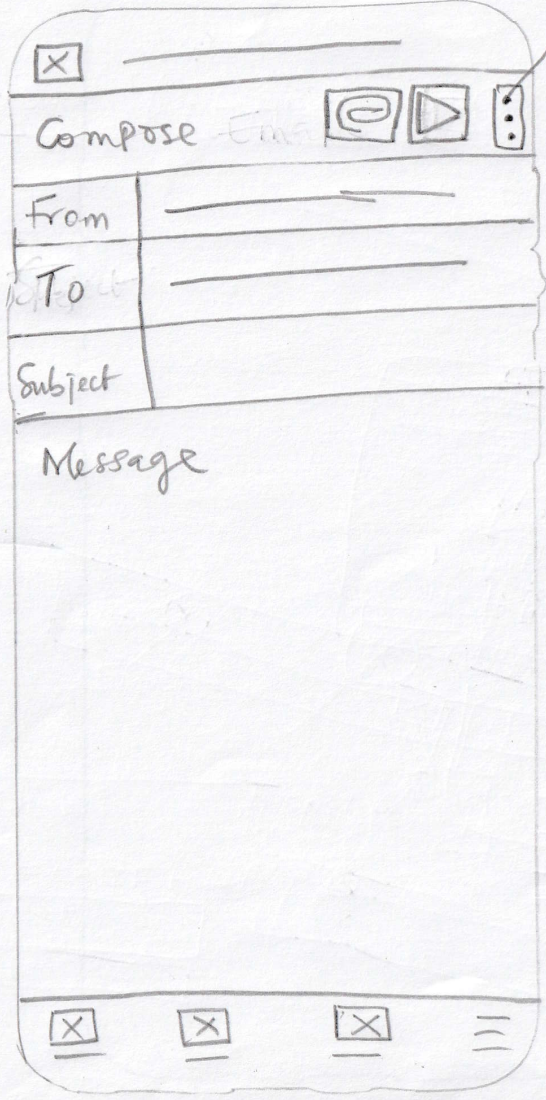 Compose
From
To
Subject
Message